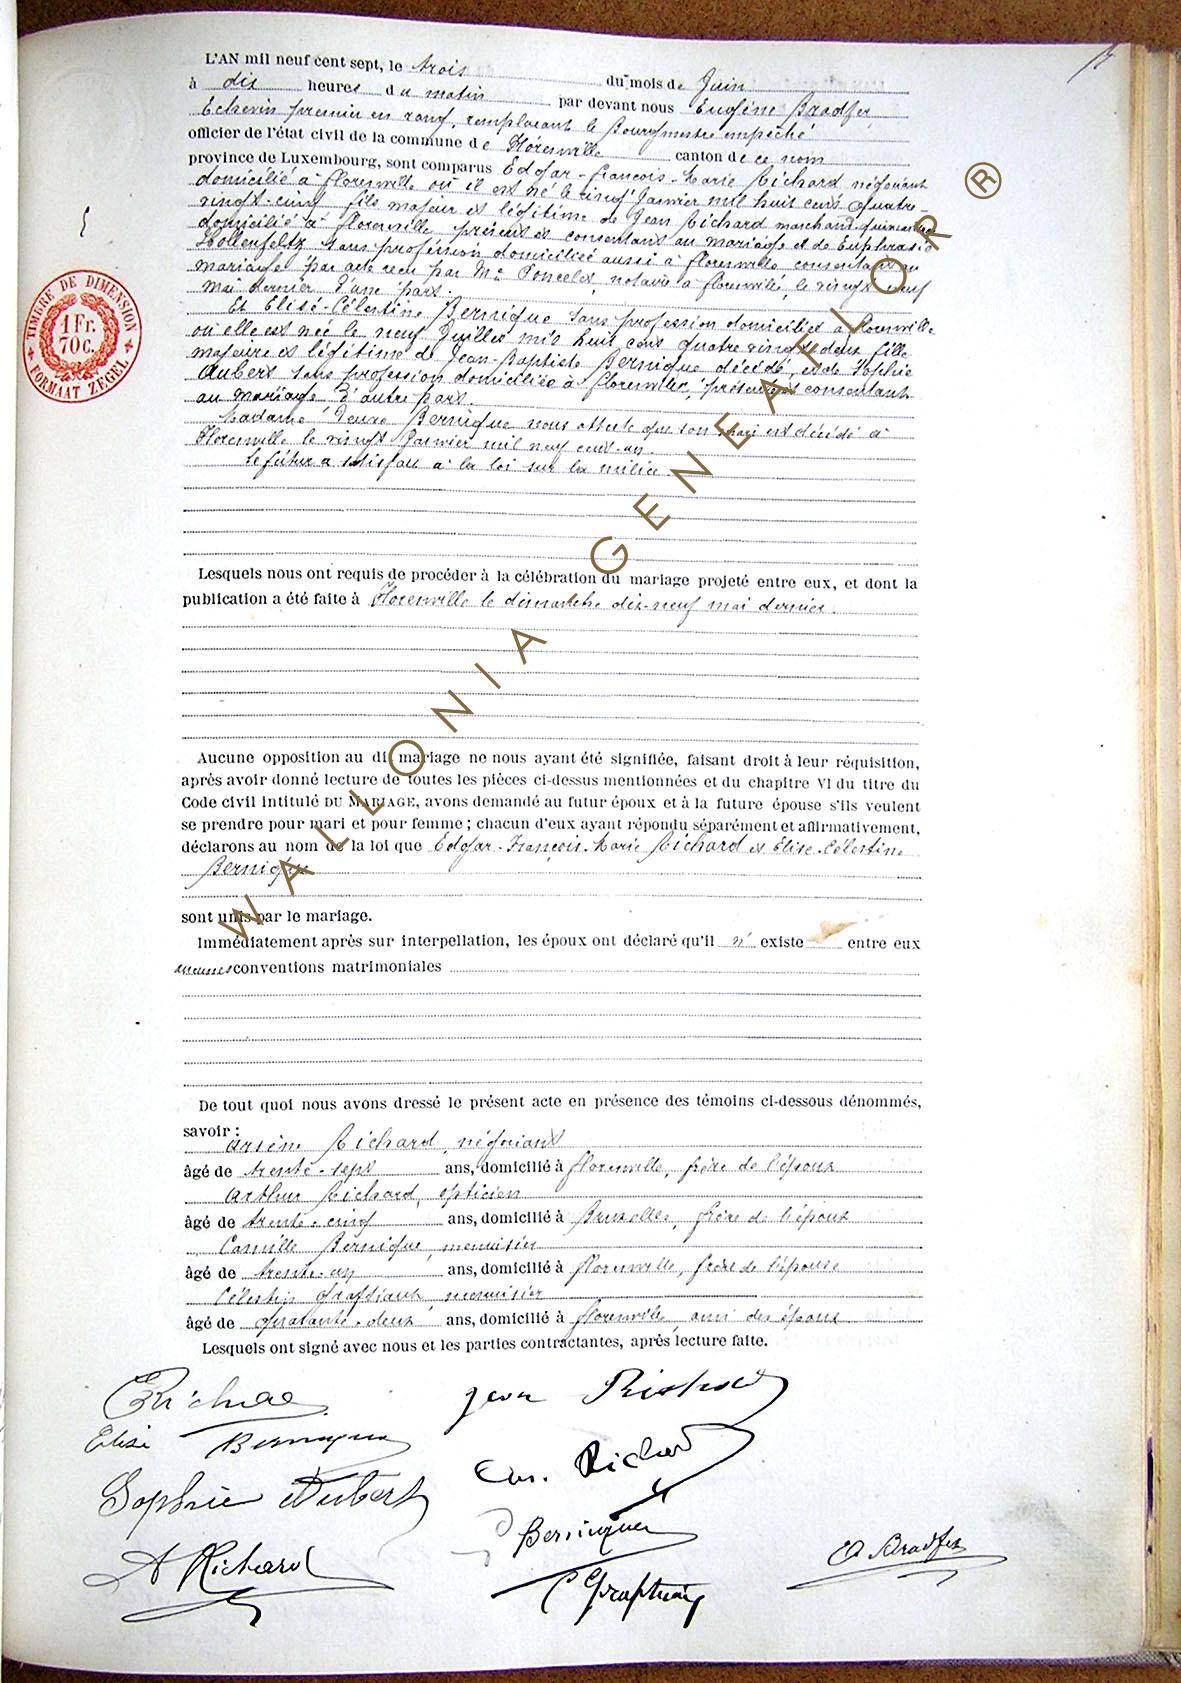 L'AN mil neuf cent sept, le trois du mois de Juin
à dix heures du matin par devant nous Eugène Bradfer,
Echevin premier en rang, remplaçant le Bourgmestre empêché
officier de l'état civil de la commune de Florenville canton de ce nom
province de Luxembourg, sont comparus Edgar-François-Marie Richard négociant
domicilié à Florenville où il est né le cinq Janvier mil huit cent quatre-
vingt-cinq fils majeur et légitime de Jean Richard marchand quincailler
domicilié à Florenville présent et consentant au mariage et de Euphrasie
Hollenfeltz sans profession domiciliée aussi à Florenville consentant au
mariage par acte reçu par Me Poncelet, notaire à Florenville, le vingt neuf
mai dernier d'une part.
Et Elisé-Célestine Bernique sans profession domiciliée à Florenville
où elle est née le neuf Juillet mil huit cent quatre vingt deux fille
majeure et légitime de Jean-Baptiste Bernique décédé, et de Sophie
Aubert sans profession domiciliée à Florenville, présente et consentant
au mariage d'autre part.
Madame Veuve Bernique nous atteste que son mari est décédé à
Florenville le vingt Janvier mil neuf cent-un.
Le futur a satisfait à la loi sur la milice.
Lesquels nous ont requis de procéder à la célébration du mariage projeté entre eux, et dont la
publication a été faite à Florenville le dimanche dix-neuf mai dernier.
Aucune opposition au dit mariage ne nous ayant été signifiée, faisant droit à leur réquisition,
après avoir donné lecture de toutes les pièces ci-dessus mentionnées et du chapitre VI du titre du
Code civil intitulé DU MARIAGE, avons demandé au futur époux et à la future épouse s'ils veulent
se prendre pour mari et pour femme ; chacun d'eux ayant répondu séparément et affirmativement,
déclarons au nom de la loi que Edgar-François-Marie Richard et Elise-Célestine
Bernique
sont unis par le mariage.
Immédiatement après sur interpellation, les époux ont déclaré qu'il n' existe entre eux
aucunes conventions matrimoniales
De tout quoi nous avons dressé le présent acte en présence des témoins ci-dessous dénommés,
savoir :
Arsène Richard, négociant
âgé de trente-sept ans, domicilié à Florenville, frère de l'époux
Arthur Richard, opticien
âgé de trente-cinq ans, domicilié à Bruxelles, frère de l'époux
Camille Bernique, menuisier
âgé de trente-un ans, domicilié à Florenville, frère de l'épouse
Célestin Graftiaux, menuisier
âgé de quarante-deux ans, domicilié à Florenville, ami des époux
Lesquels ont signé avec nous et les parties contractantes, après lecture faite.
Jean Richard
Elise Bernique
Richard
Sophie Aubert
Bernique
A Richard
Bradfer
TIMBRE DE DIMENSION
1 Fr.
70 C.
FORMAAT ZEGEL
WALLONIA GENEAFLOR ®